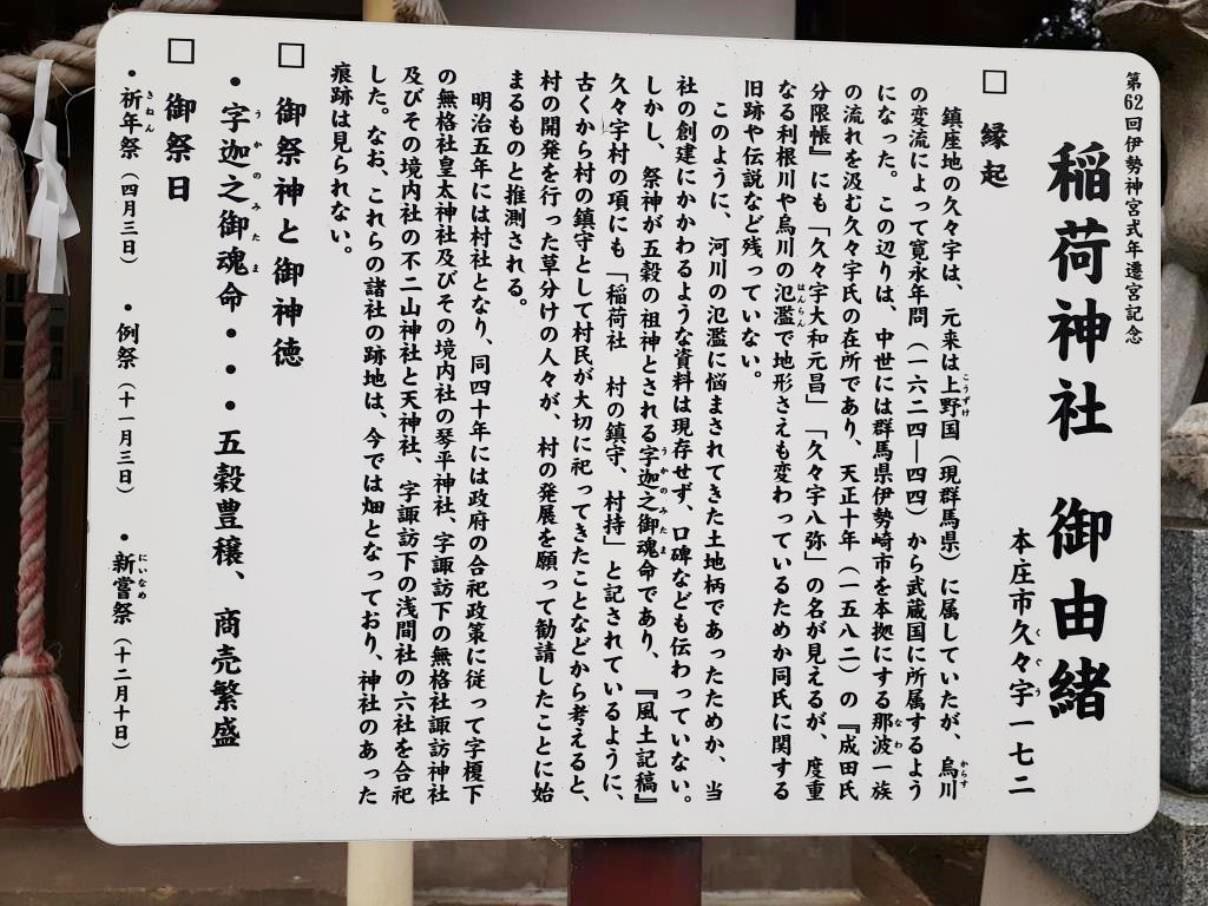 第62回伊勢神宮式年遷宮記念
稲荷神社 御由緒
本庄市久々宇一七二
□ 縁起
鎮座地の久々宇は、元来は上野国（現群馬県）に属していたが、烏川
の変流によって寛永年間（一六二四―四四）から武蔵国に所属するよう
になった。この辺りは、中世には群馬県伊勢崎市を本拠にする那波一族
の流れを汲む久々宇氏の在所であり、天正十年（一五八二）の『成田氏
分限帳』にも「久々宇大和元昌」「久々宇八弥」の名が見えるが、度重
なる利根川や烏川の氾濫で地形さえも変わっているためか同氏に関する
旧跡や伝説など残っていない。
このように、河川の氾濫に悩まされてきた土地柄であったためか、当
社の創建にかかわるような資料は現存せず、口碑なども伝わっていない。
しかし、祭神が五穀の祖神とされる宇迦之御魂命であり、『風土記稿』
久々宇村の項にも「稲荷社 村の鎮守、村持」と記されているように、
古くから村の鎮守として村民が大切に祀ってきたことなどから考えると、
村の開発を行った草分けの人々が、村の発展を願って勧請したことに始
まるものと推測される。
明治五年には村社となり、同四十年には政府の合祀政策に従って字榎下
の無格社皇太神社及びその境内社の琴平神社、字諏訪下の無格社諏訪神社
及びその境内社の不二山神社と天神社、字諏訪下の浅間社の六社を合祀
した。なお、これらの諸社の跡地は、今では畑となっており、神社のあった
痕跡は見られない。
□ 御祭神と御神徳
・字迦之御魂命・・・五穀豊穣、商売繁盛
□ 御祭日
・祈年祭（四月三日） ・例祭（十一月三日） ・新嘗祭（十二月十日）